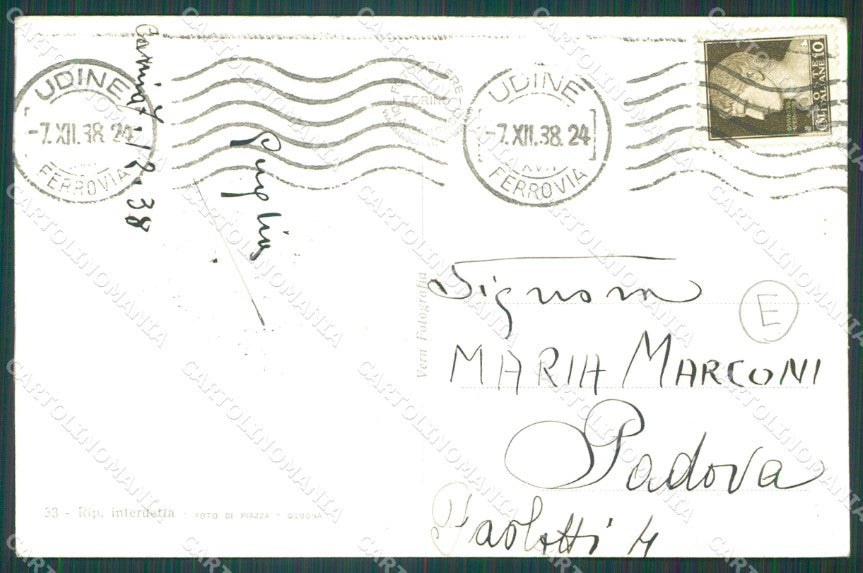 UDINE
-7.XII.38.24
FERROVIA
UDINE
-7.XII.38.24
XVII
FERROVIA
TORINO
10
Carnia 7.12.38
Signora
MARIA MARCONI
Padova
Paoletti 4
E
Vera Fotografia
33 - Rip. interdetta - FOTO DI PIAZZA - GEMONA
CARTOLINOMANIA